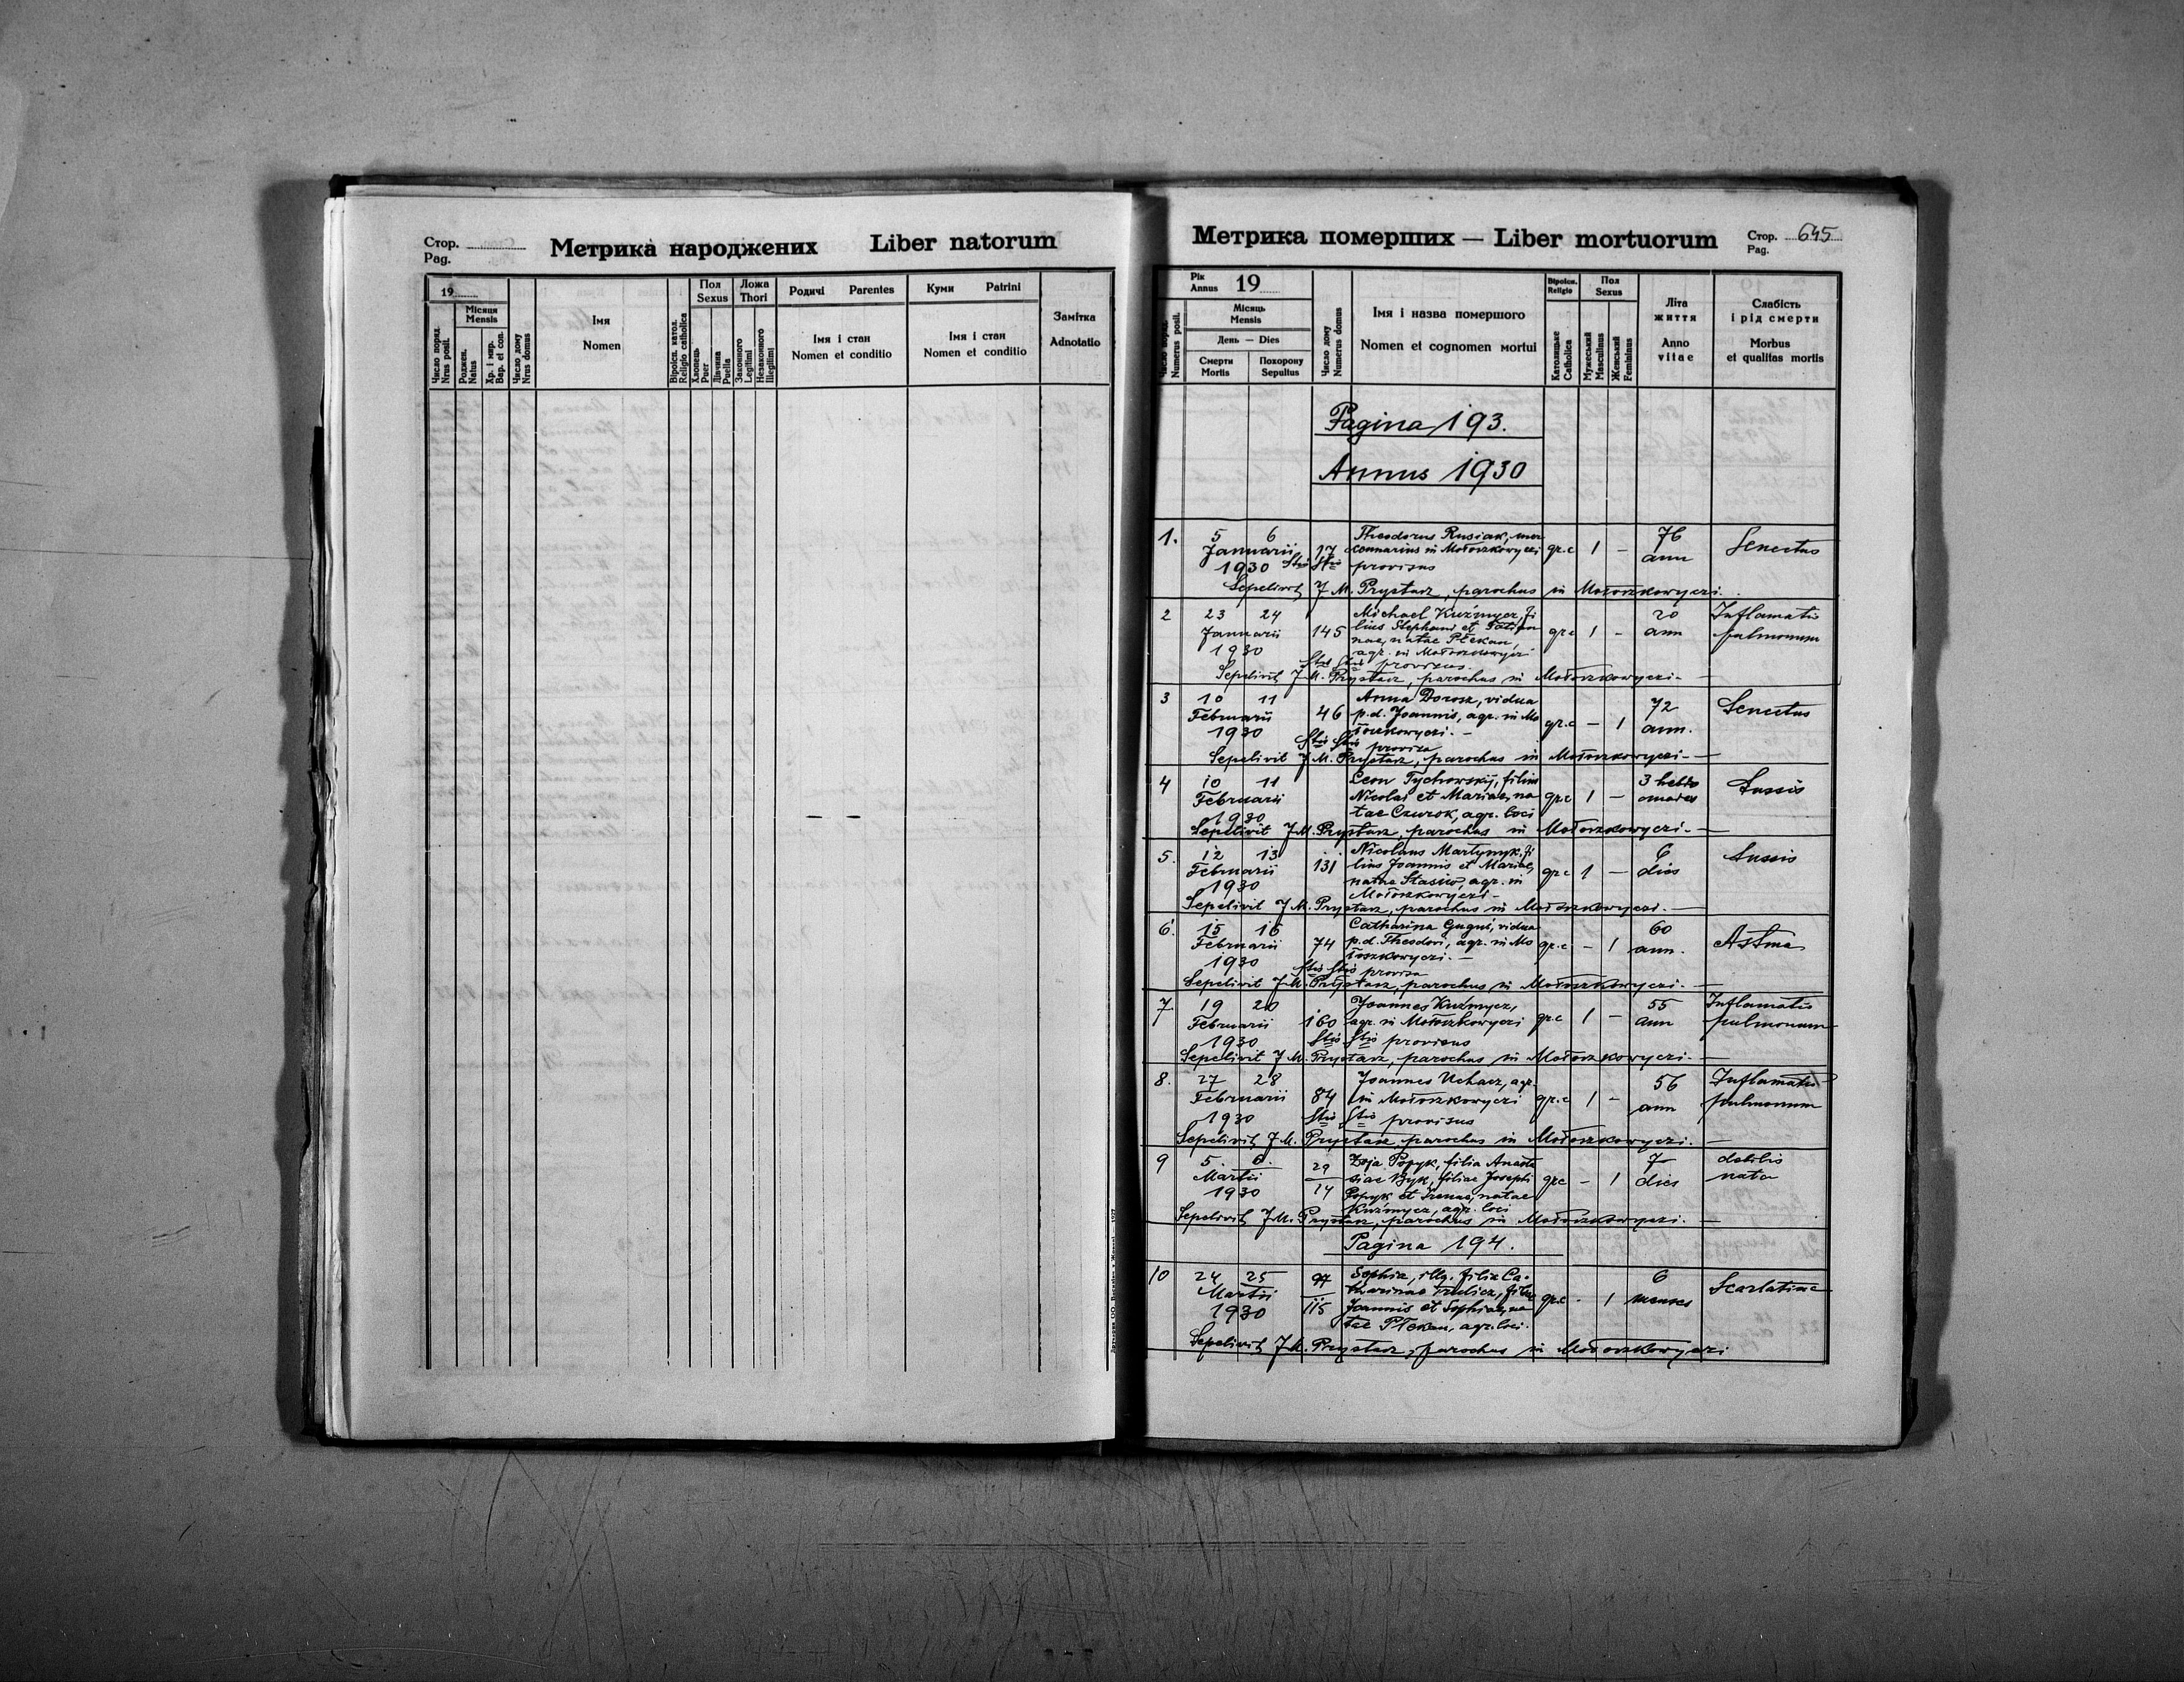 Стор.
Pag.
Метрика народжених Liber natorum
19
Число поряд.
Nrus posit.
Місяця
Mensis
Роджен.
Natus
Хр. і мир.
Bap. et con.
Число дому
Nrus domus
Імя
Nomen
Віроісп. катол.
Religio catholica
Пол
Sexus
Хлопець
Puer
Дівчина
Puella
Ложа
Thori
Законного
Legitimi
Незаконного
Illegitimi
Родичі Parentes
Імя і стан
Nomen et conditio
Куми Patrini
Імя і стан
Nomen et conditio
Замітка
Adnotatio
Метрика померших — Liber mortuorum
Стор. 645
Pag.
Рік
Annus 19
Numerus posit.
Місяць
Mensis
День — Dies
Смерти
Mortis
Похорону
Sepultus
Число дому
Numerus domus
Імя і назва помершого
Nomen et cognomen mortui
Віроісп.
Religio
Католицьке
Catholica
Пол
Sexus
Мужеський
Masculinus
Женський
Femininus
Літа
життя
Anno
vitae
Слабість
і рід смерти
Morbus
et qualitas mortis
Pagina 193.
Annus 1930
1. 5 6 Theodorus Rusiak, mer 76
Januarii 17 cennarius in Mołoszkowyczi gr.c 1 – ann Senectus
1930 Stis Stis provisus
Sepelivit J M. Prystasz, parochus in Mołoszkowyczi.
2 23 24 Michael Kuźmycz, fi 20 Inflamatio
Januarii 145 lius Stephani et Tatian gr c 1 – ann pulmonum
1930 nae, natae Płekan,
agr. in Mołoszkowyczi
Stis Stis provisus.
Sepelivit J M. Prystasz, parochus in Mołoszkowyczi. –
3 10 11 Anna Dorosz, vidua 72 Senectus
Februarii 46 p.d. Joannis, agr. in Mo gr.c – 1 ann.
1930 łoszkowyczi. –
Stis Stis provisa
Sepelivit J M. Prystasz, parochus in Mołoszkowyczi. –
4 10 11 Leon Tychowskij, filius 3 hebdo
Februarii Nicolai et Mariae, na gr.c 1 – mades Tussis
1930 tae Czurok, agr. loci
Sepelivit J M. Prystasz, parochus in Mołoszkowyczi. –
5. 12 13 Nicolaus Martynyk, fi 6 Tussis
Februarii 131 lius Joannis et Mariae, gr c 1 – dies
1930 natae Stasiw, agr. in
Mołoszkowyczi –
Sepelivit J M. Prystasz, parochus in Mołoszkowyczi. –
6. 15 16 Catharina Guguś, vidua 60
Februarii 74 p.d. Theodori, agr. in Mo gr.c – 1 ann. Astma
1930 łoszkowyczi. –
Stis Stis provisa
Sepelivit J M. Prystasz, parochus in Mołoszkowyczi. –
7. 19 20 Joannes Kuźmycz, 55 Inflamatio
Februarii 160 agr. in Mołoszkowyczi gr.c 1 – ann pulmonum
1930 Stis Stis provisus
Sepelivit J M. Prystasz, parochus in Mołoszkowyczi. –
8. 27 28 Joannes Uchacz, agr. 56 Inflamatio
Februarii 84 in Mołoszkowyczi gr.c 1 – ann pulmonum
1930 Stis Stis provisus
Sepelivit J M. Prystasz, parochus in Mołoszkowyczi. –
9 5. 6. 29 Zoja Popyk, filia Anasta 7 debilis
Martii siae Byk, filiae Josephi gr c – 1 dies nata
1930 14 Popyk et Irenae, natae
Kuźmycz, agr. loci
Sepelivit J M. Prystasz, parochus in Mołoszkowyczi. –
Pagina 194.
10 24 25 97 Sophia, illg. filia Ca- 6 Scarlatina
Martii tharinae filiae gr.c - 1 menses
1930 115 Joannis et Sophiae, na
tae Płekan, agr. loci.
Sepelivit J M. Prystasz, parochus in Mołoszkowyczi